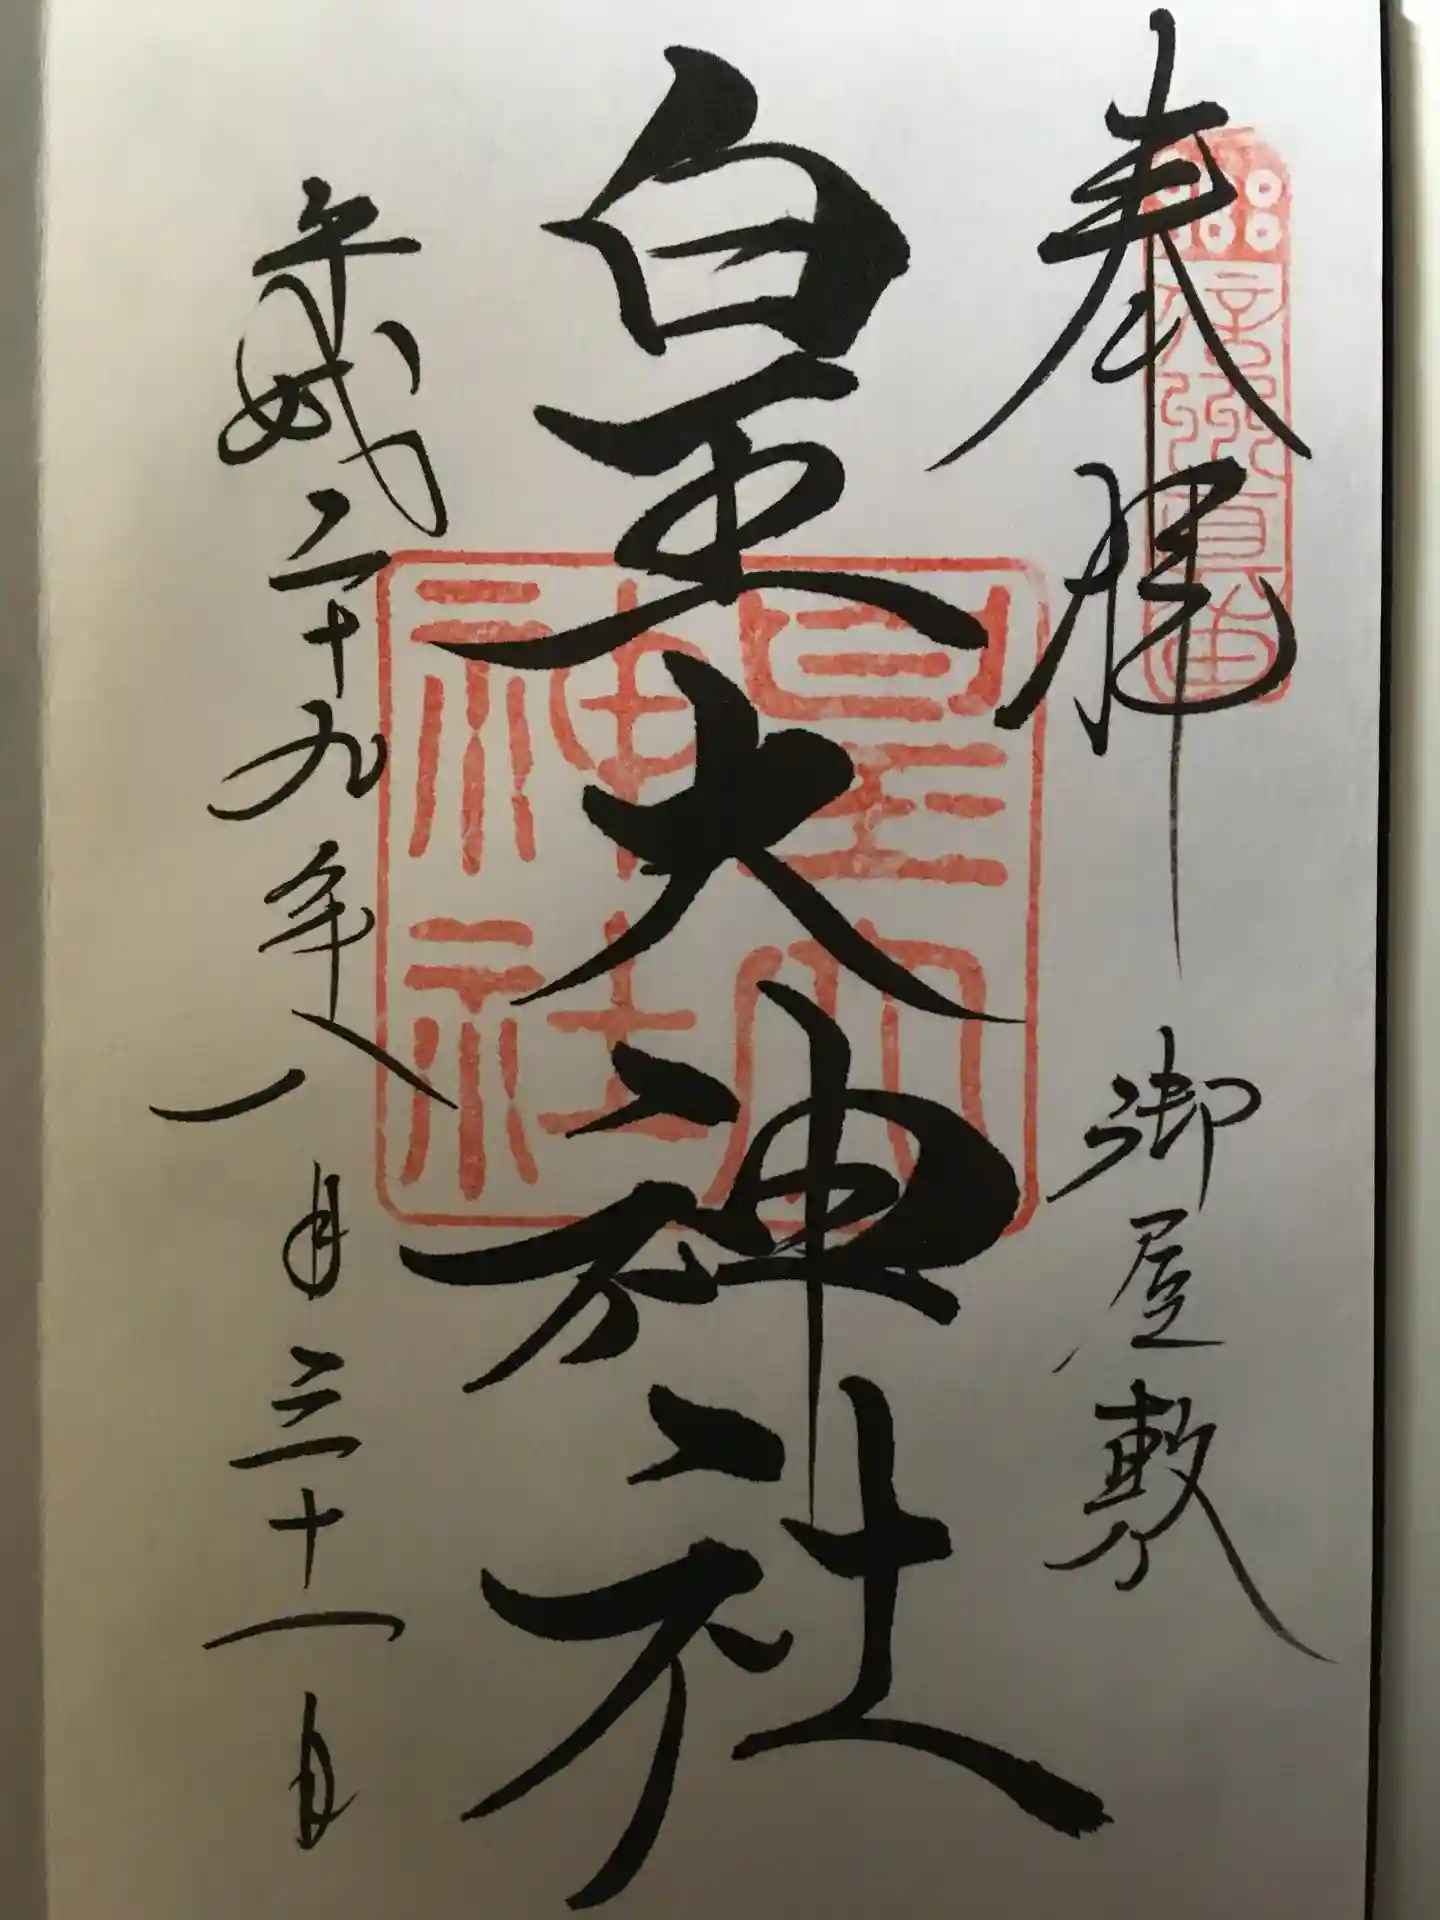 奉拝
御屋敷
信州真田
皇大神社
皇大
神社
平成二十九年八月三十一日